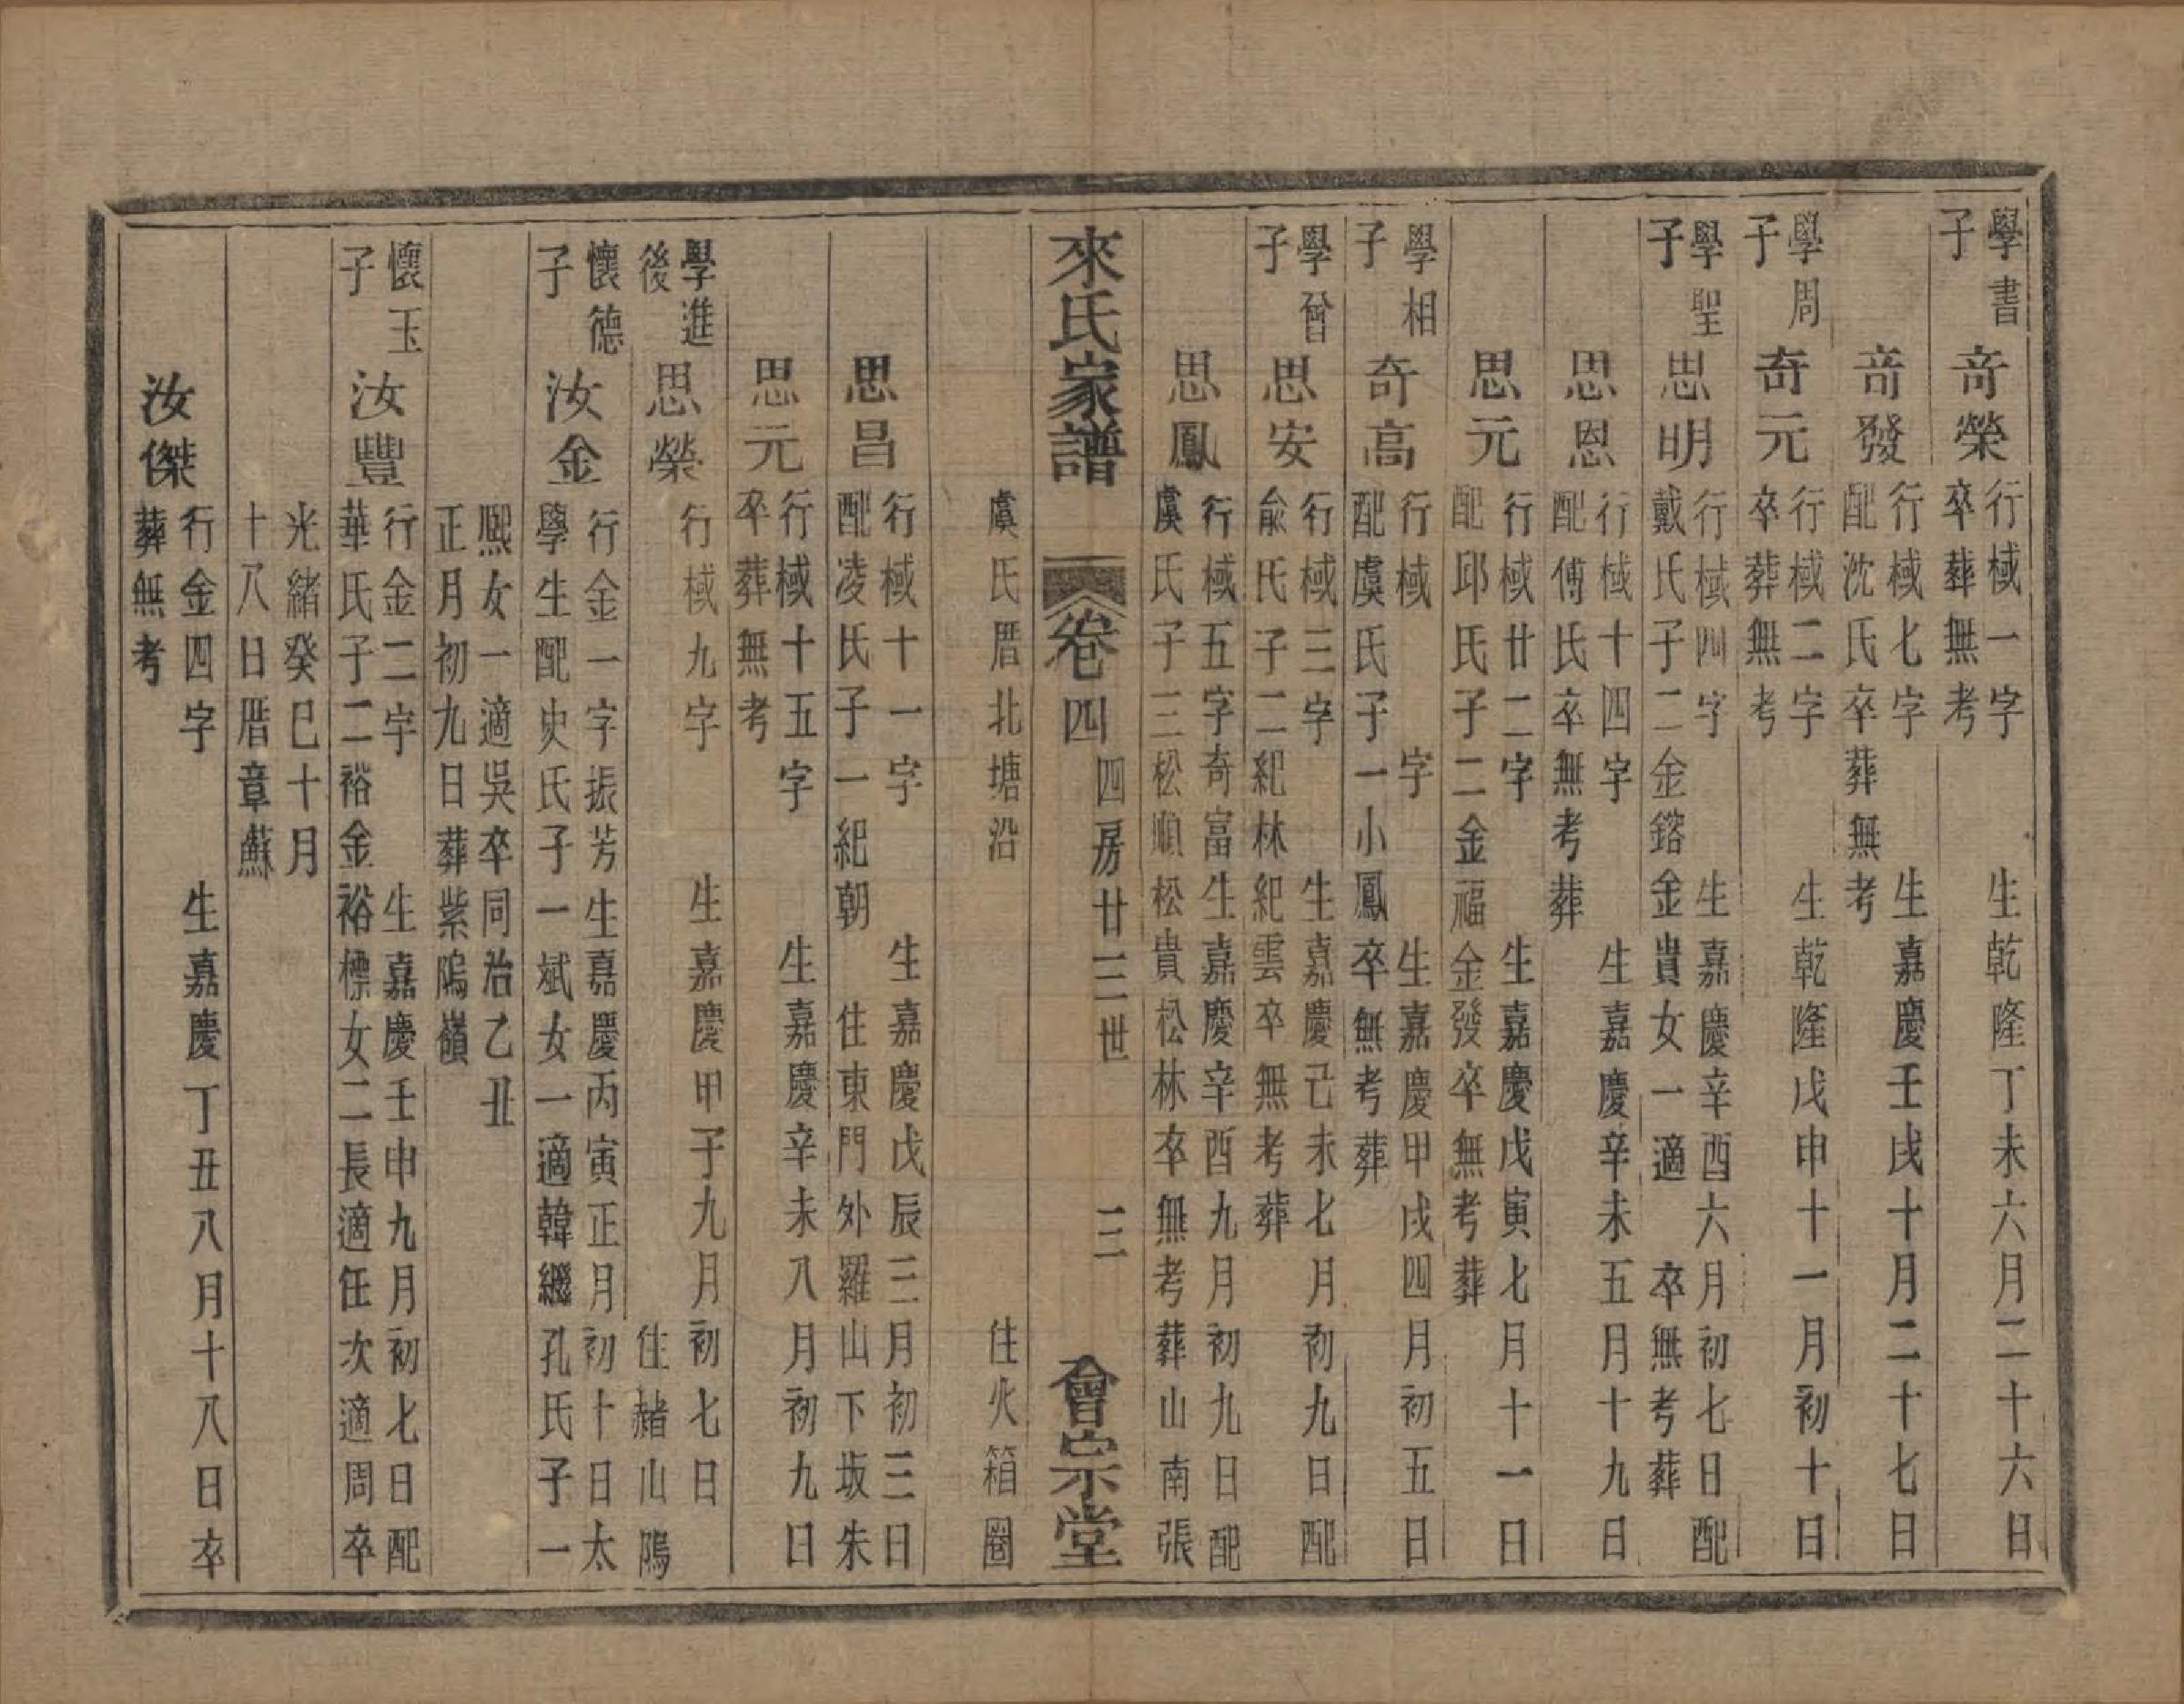 學書
子
奇榮
行棫一字　生乾隆丁未六月二十六日
卒葬無考
奇發
行棫七字　生嘉慶壬戌十月二十七日
配沈氏卒葬無考
學周
子
奇元
行棫二字　生乾隆戊申十一月初十日
卒葬無考
學聖
子
思明
行棫四字　生嘉慶辛酉六月初七日配
戴氏子二金鎔金貴女一適　卒無考葬
思恩
行棫十四字　生嘉慶辛未五月十九日
配傅氏卒無考葬
思元
行棫廿二字　生嘉慶戊寅七月十一日
配邱氏子二金福金發卒無考葬
學相
子
奇高
行棫　字　生嘉慶甲戌四月初五日
配虞氏子一小鳳卒無考葬
學曾
子
思安
行棫三字　生嘉慶己未七月初九日配
俞氏子二紀林紀雲卒無考葬
思鳳
行棫五字奇富生嘉慶辛酉九月初九日配
虞氏子三松順松貴松林卒無考葬山南張
來氏家譜　卷四　四房廿三世　三　會宗堂
虞氏厝北塘沿　住火箱圈
思昌
行棫十一字　生嘉慶戊辰三月初三日
配凌氏子一紀朝　住東門外羅山下坂朱
思元
行棫十五字　生嘉慶辛未八月初九日
卒葬無考
學進
後
思榮
行棫九字　生嘉慶甲子九月初七日
住赭山隖
懷德
子
汝金
行金一字振芳生嘉慶丙寅正月初十日太
學生配史氏子一斌女一適韓繼孔氏子一
熙女一適吳卒同治乙丑
正月初九日葬紫隖嶺
懷玉
子
汝豐
行金二字　生嘉慶壬申九月初七日配
華氏子二裕金裕標女二長適任次適周卒
光緒癸巳十月
十八日厝章蘇
汝傑
行金四字　生嘉慶丁丑八月十八日卒
葬無考